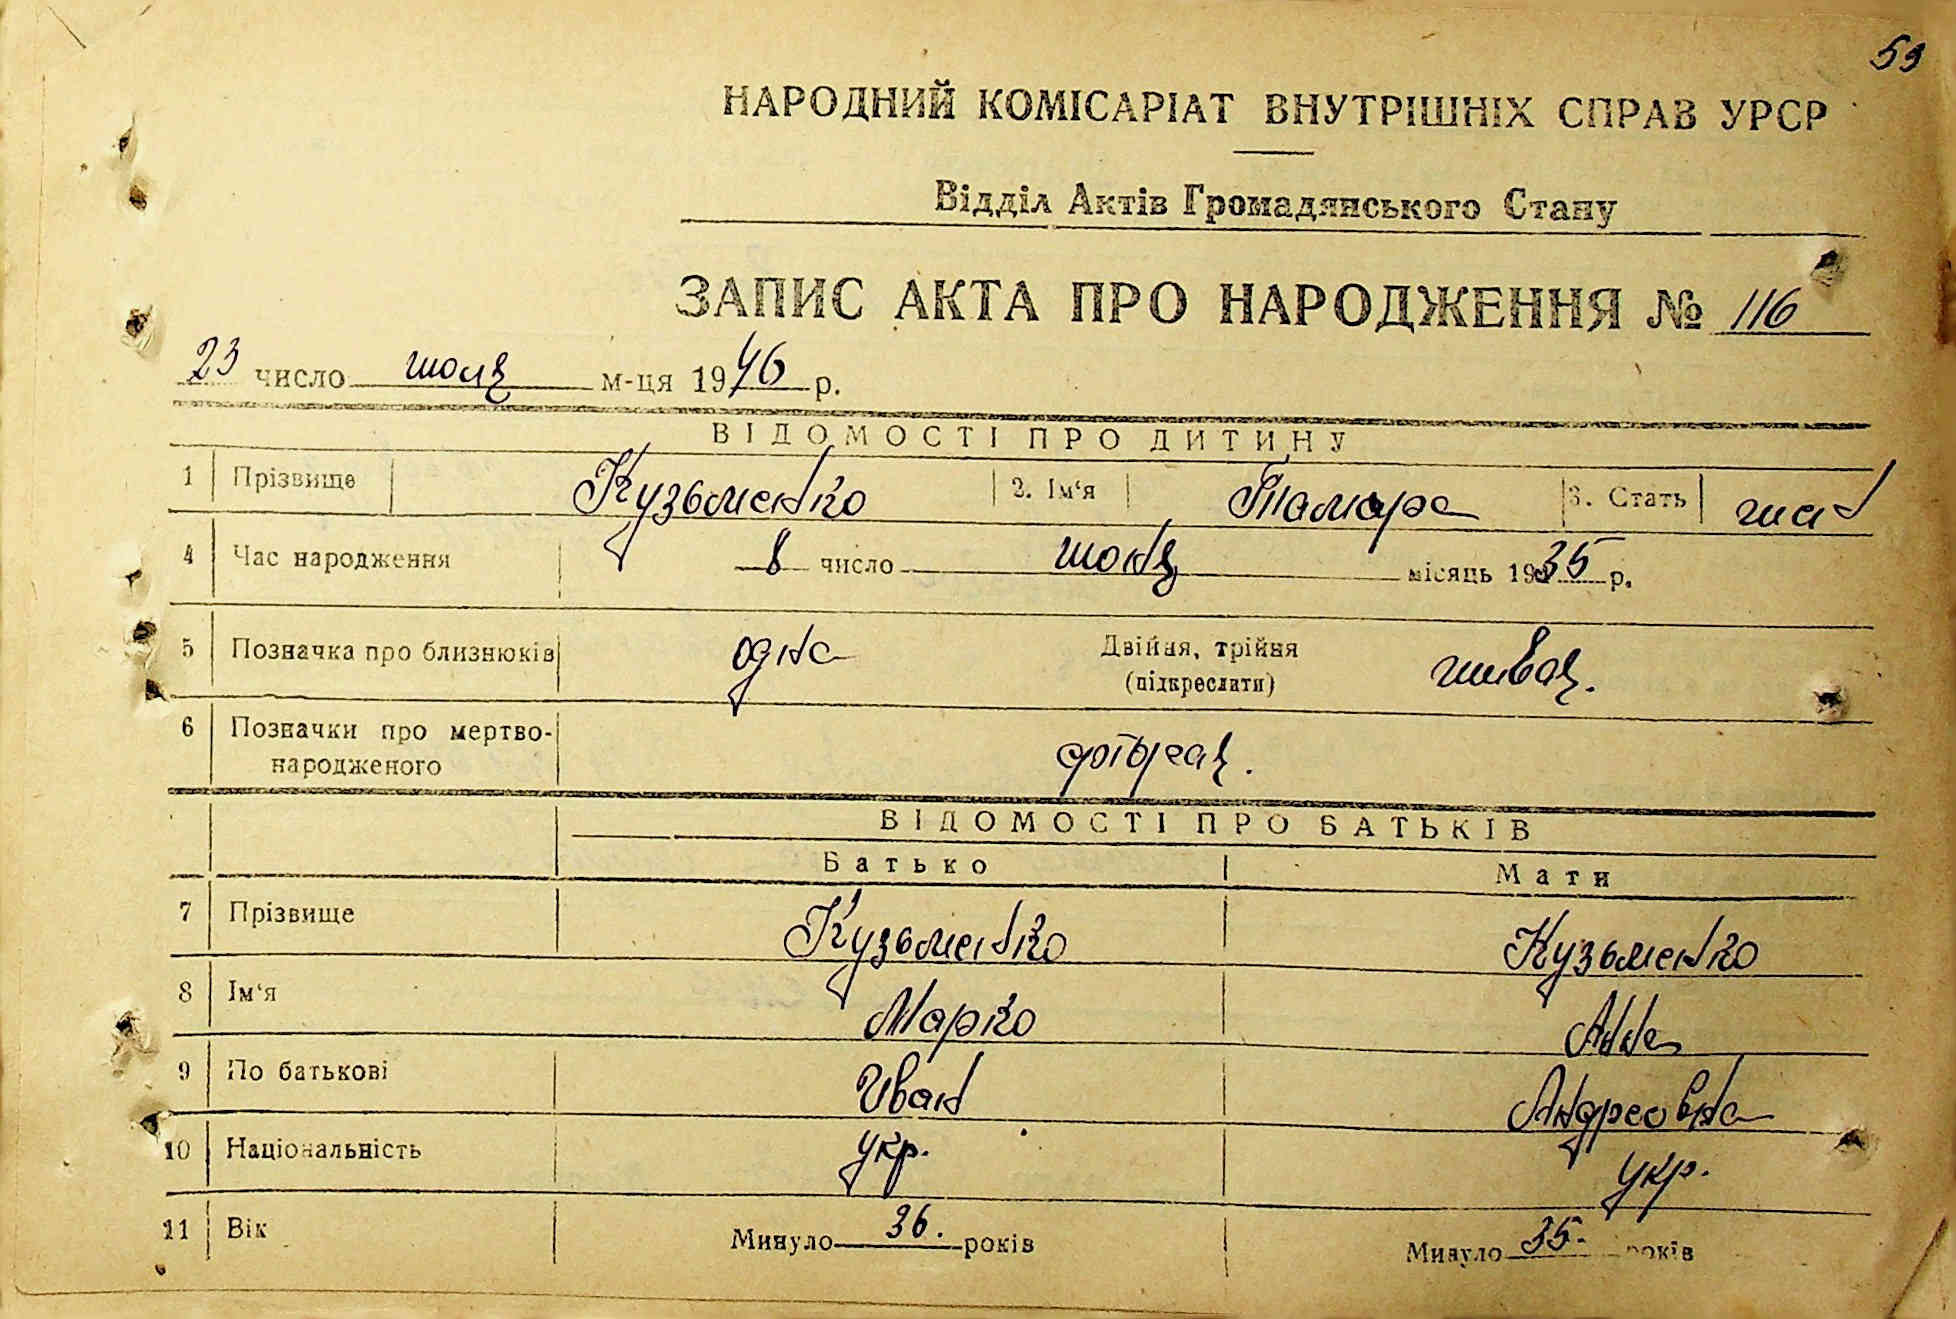 59
НАРОДНИЙ КОМІСАРІАТ ВНУТРІШНІХ СПРАВ УРСР
Відділ Актів Громадянського Стану
ЗАПИС АКТА ПРО НАРОДЖЕННЯ № 116
23 число июля м-ця 1946 р.
ВІДОМОСТІ ПРО ДИТИНУ
1 Прізвище Кузьменко 2. Ім'я Тамара 3. Стать жен
4 Час народження 8 число июля місяць 1935 р.
5 Позначка про близнюків одна Двійня, трійня
(підкреслити)
6 Позначки про мертво-
народженого
ВІДОМОСТІ ПРО БАТЬКІВ
Батько Мати
7 Прізвище Кузьменко Кузьменко
8 Ім'я Марко Анна
9 По батькові Иван Андреовна
10 Національність укр. укр.
11 Вік Минуло 36. років Минуло 35. років